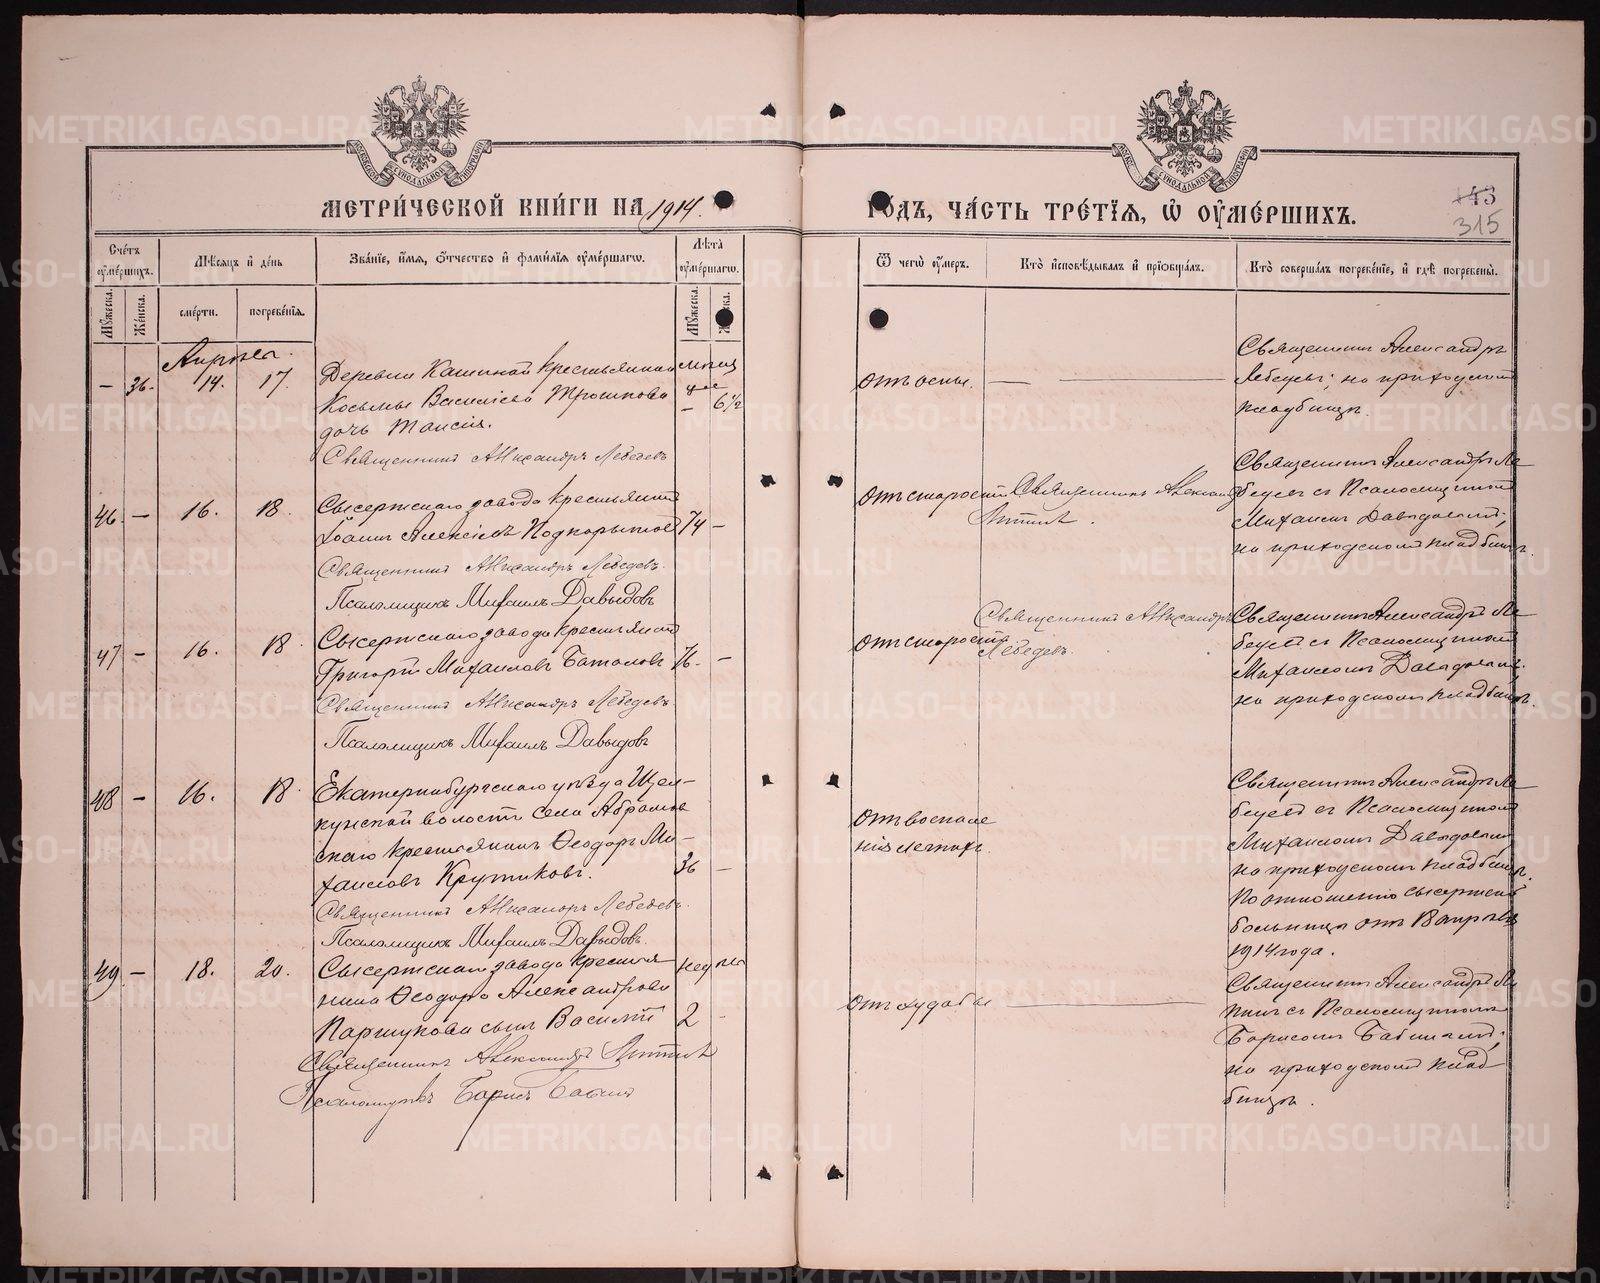 МЕТРИ́ЧЕСКОЙ КНИ́ГИ НА 1914.
ГО́ДЪ, ЧА́СТЬ ТРЕ́ТІѦ, Ѡ ОУМЕ́РШИХЪ.
143
315
Сче́тъ оуме́ршихъ.
Мꙋ́жеска.
Же́нска.
Мѣ́сяцъ и де́нь
сме́рти.
погребе́нїѧ.
Зва́нїе, и́мѧ, о́тчество и фами́лїѧ оуме́ршагѡ.
Лѣта̀ оуме́ршагѡ.
Мꙋ́жеска.
Ѿ чегѡ̀ оу́меръ.
Кто̀ и́сповѣ́дывалъ и прїѡбща́лъ.
Кто̀ соверша́лъ погребе́нїе, и гдѣ̀ погребены̀.
Апрѣль.
— 36. 14. 17.
Деревни Кашиной крестьянина
Косьмы Василіева Трошкова
дочь Таисія.
Священникъ Александръ Лебедевъ
мѣсяц
— 6 1/2
Отъ оспы.
Священникъ Александръ
Лебедевъ; на приходскомъ
кладбищѣ.
46. — 16. 18.
Сысертскаго завода крестьянинъ
Іоаннъ Алексѣевъ Подкорытовъ
74 —
Священникъ Александръ Лебедевъ.
Псаломщикъ Михаилъ Давыдовъ
Отъ старости
Священникъ Александръ
Священникъ Александръ Ле-
бедевъ съ Псаломщикомъ
Михаиломъ Давыдовымъ;
на приходскомъ кладбищѣ.
47 — 16. 18.
Сысертскаго завода крестьянинъ
Григорій Михаиловъ Баталовъ
76. —
Священникъ Александръ Лебедевъ.
Псаломщикъ Михаилъ Давыдовъ
Отъ старости
Священникъ Александръ
Лебедевъ.
Священникъ Александръ Ле-
бедевъ съ Псаломщикомъ
Михаиломъ Давыдовымъ;
на приходскомъ кладбищѣ.
48 — 16. 18.
Екатеринбургскаго уѣзда Щел-
кунской волости села Абрамов-
скаго крестьянинъ Ѳеодоръ Ми-
хаиловъ Крутиковъ.
36 —
Священникъ Александръ Лебедевъ.
Псаломщикъ Михаилъ Давыдовъ.
Отъ воспале
нія легкихъ.
Священникъ Александръ Ле-
бедевъ съ Псаломщикомъ
Михаиломъ Давыдовымъ
на приходскомъ кладбищѣ.
По отношенію Сысертской
больницы отъ апрѣля
1914 года.
49. — 18. 20.
Сысертскаго завода крестья-
нина Ѳеодора Александрова
Паршукова сынъ Василій
недѣль
2 -
Священникъ Александръ
Псаломщикъ Борисъ
Отъ худобы
Священникъ Александръ
съ Псаломщикомъ
Борисомъ
на приходскомъ клад
бищѣ.
METRIKI.GASO-URAL.RU